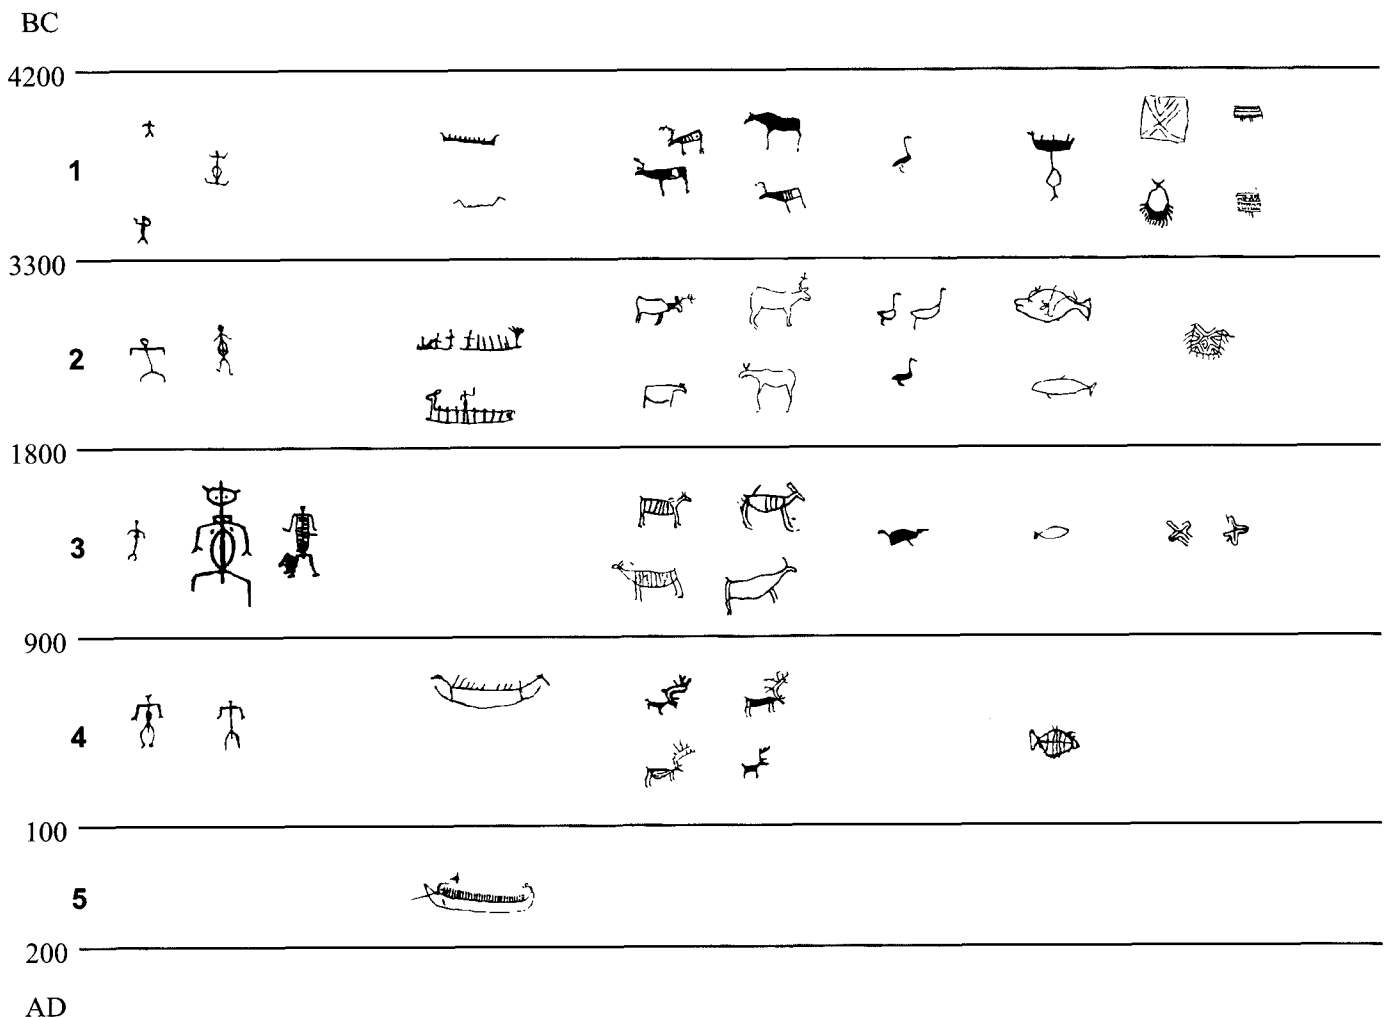 BC
4200
1
3300
2
1800
3
900
4
100
5
200
AD